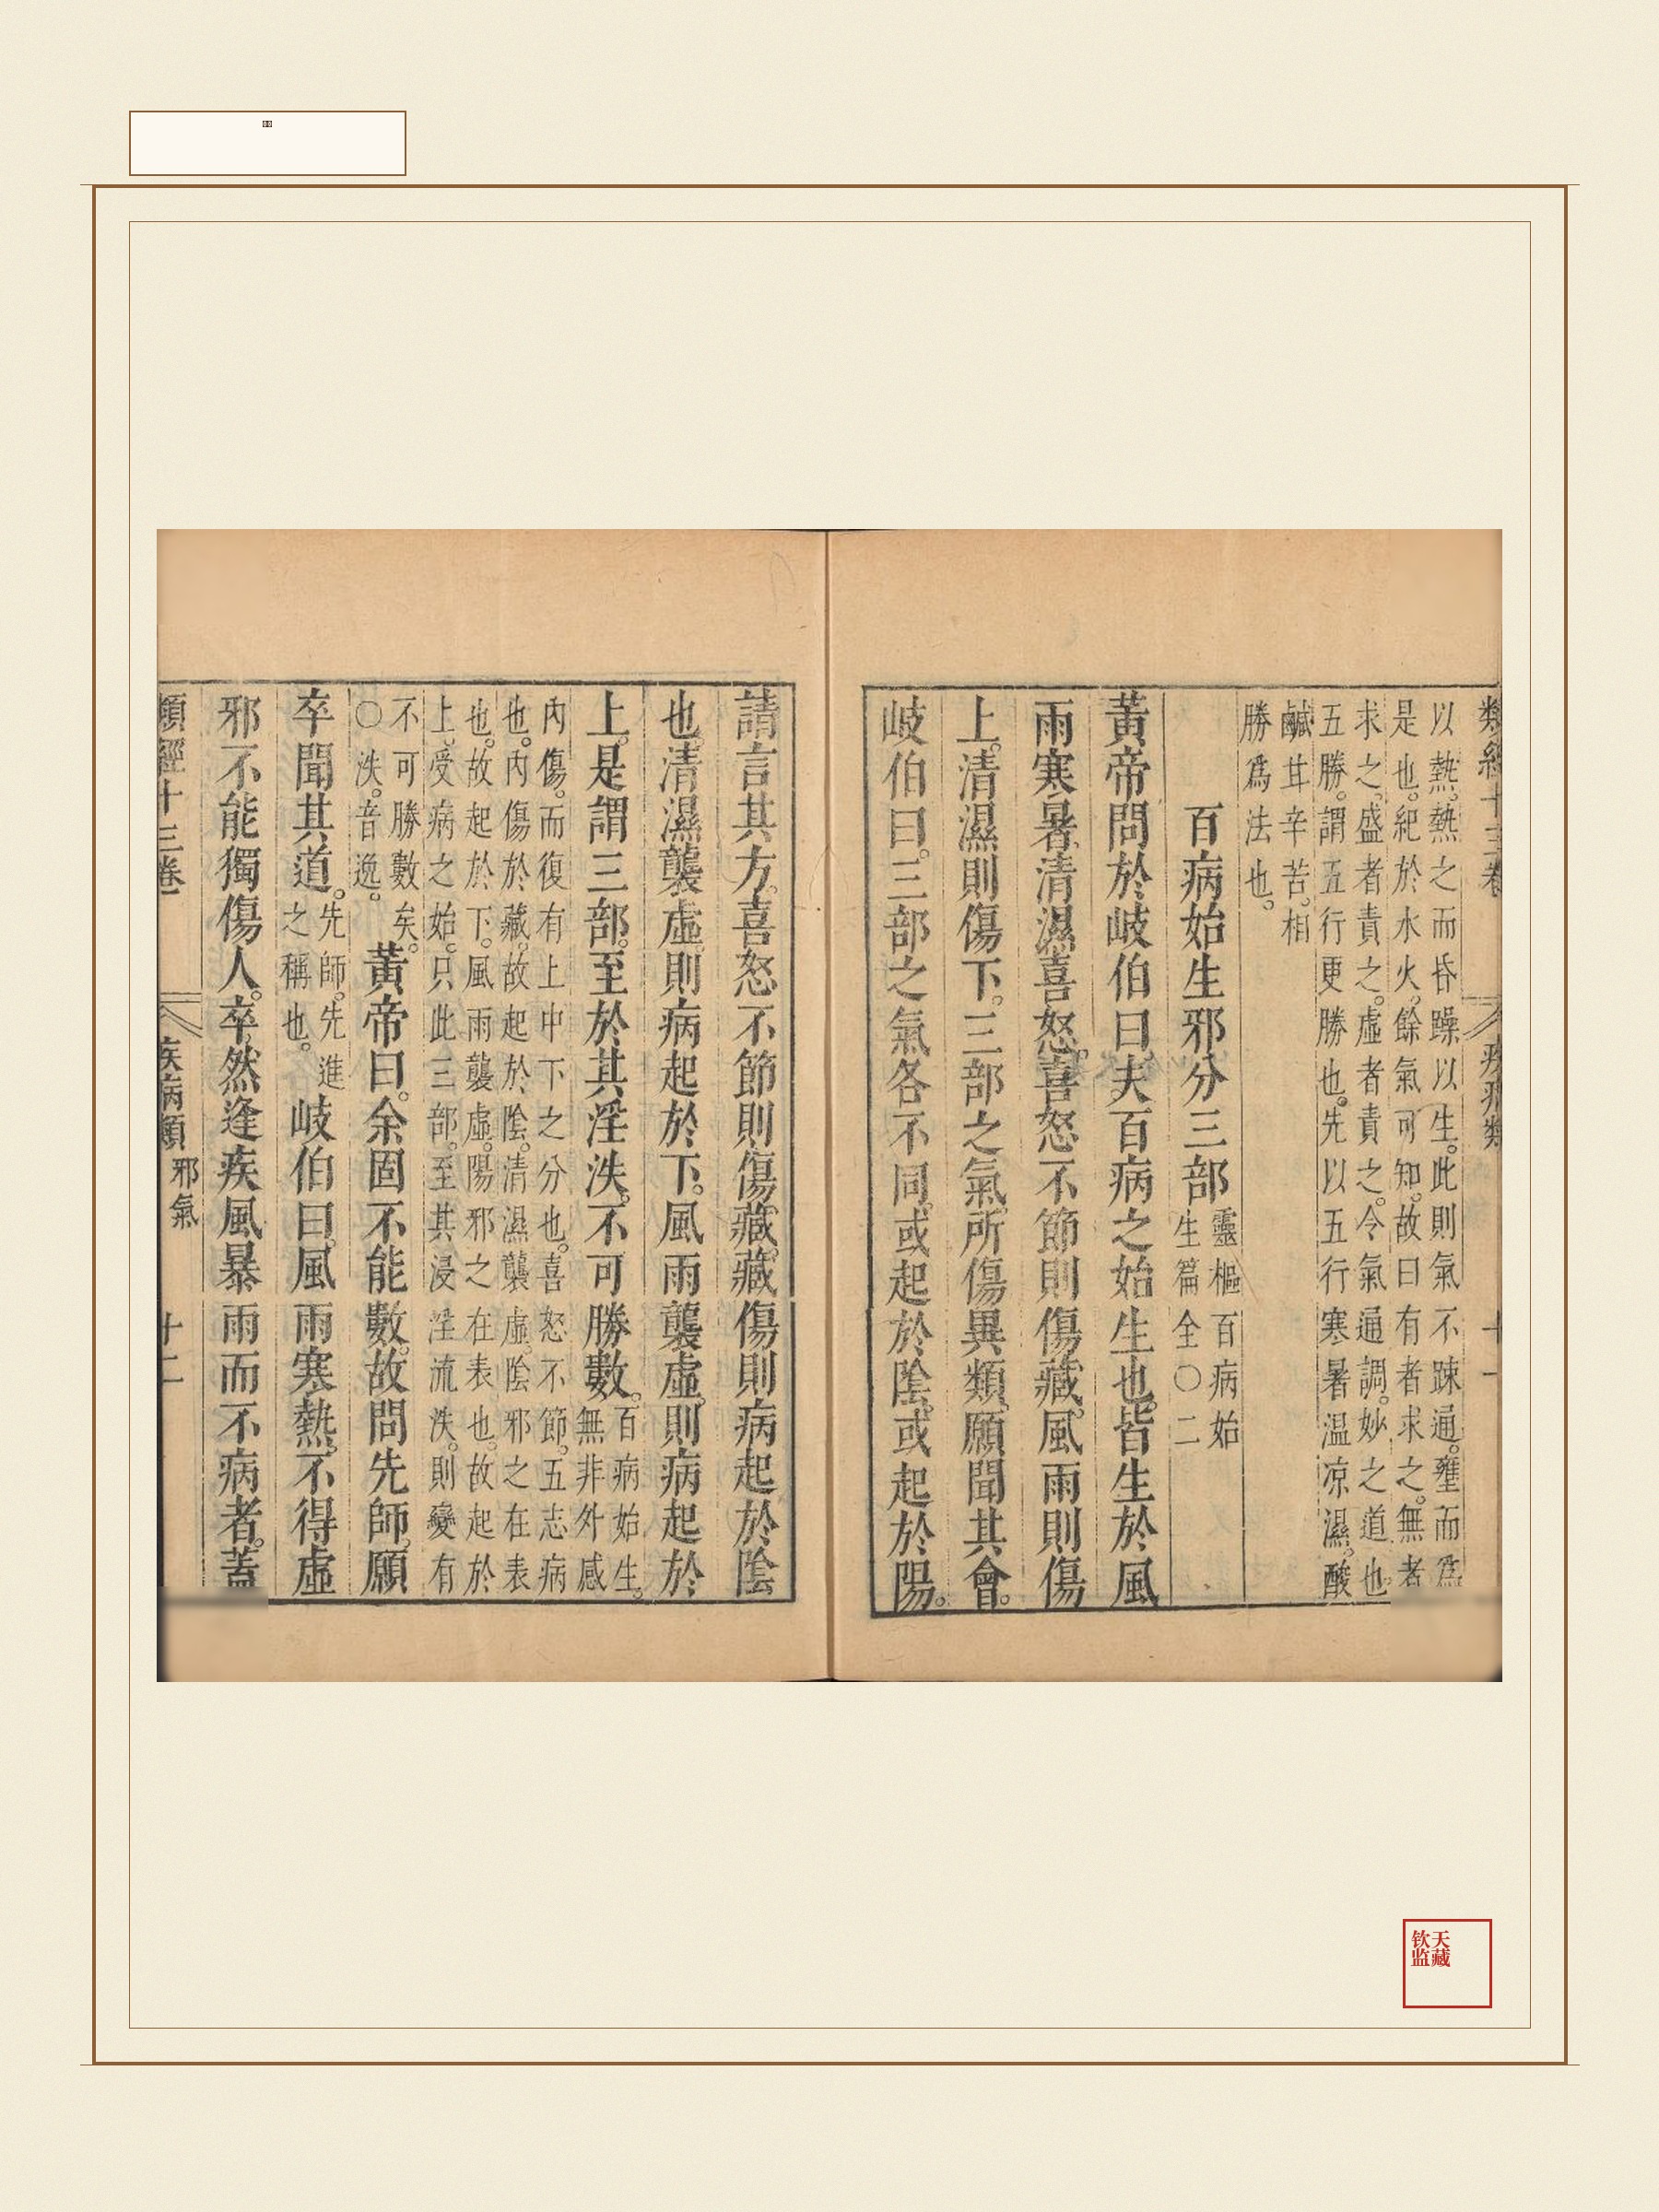 類經十三卷　疾病類　十一
以熱熱之而昏躁以生此則氣不踈通壅而爲
是也紀於水火餘氣可知故曰有者求之無者
求之盛者責之虛者責之今氣通調妙之道也
五勝謂五行更勝也先以五行寒暑温凉濕酸
鹹甘辛苦相
勝爲法也。
百病始生邪分三部
靈樞百病始
生篇全〇二
黃帝問於岐伯曰夫百病之始生也皆生於風
雨寒暑清濕喜怒喜怒不節則傷藏風雨則傷
上。清濕則傷下。三部之氣所傷異類願聞其會。
岐伯曰。三部之氣各不同或起於陰或起於陽。
請言其方喜怒不節則傷藏藏傷則病起於陰
也清濕襲虛則病起於下。風雨襲虛則病起於
上。是謂三部。至於其淫泆。不可勝數。
百病始生。
無非外感
內傷。而復有上中下之分也。喜怒不節。五志病
也。內傷於藏。故起於陰。清濕襲虛。陰邪之在表
也。故起於下。風雨襲虛。陽邪之在表也。故起於
上。受病之始。只此三部。至其浸淫流泆。則變有
不可勝數矣。
〇泆。音逸。
黃帝曰。余固不能數。故問先師。願
卒聞其道。
先師。先進
之稱也。
岐伯曰。風雨寒熱。不得虛
邪不能獨傷人。卒然逢疾風暴雨而不病者。蓋
類經十三卷　疾病類　邪氣　十二
天藏
钦监